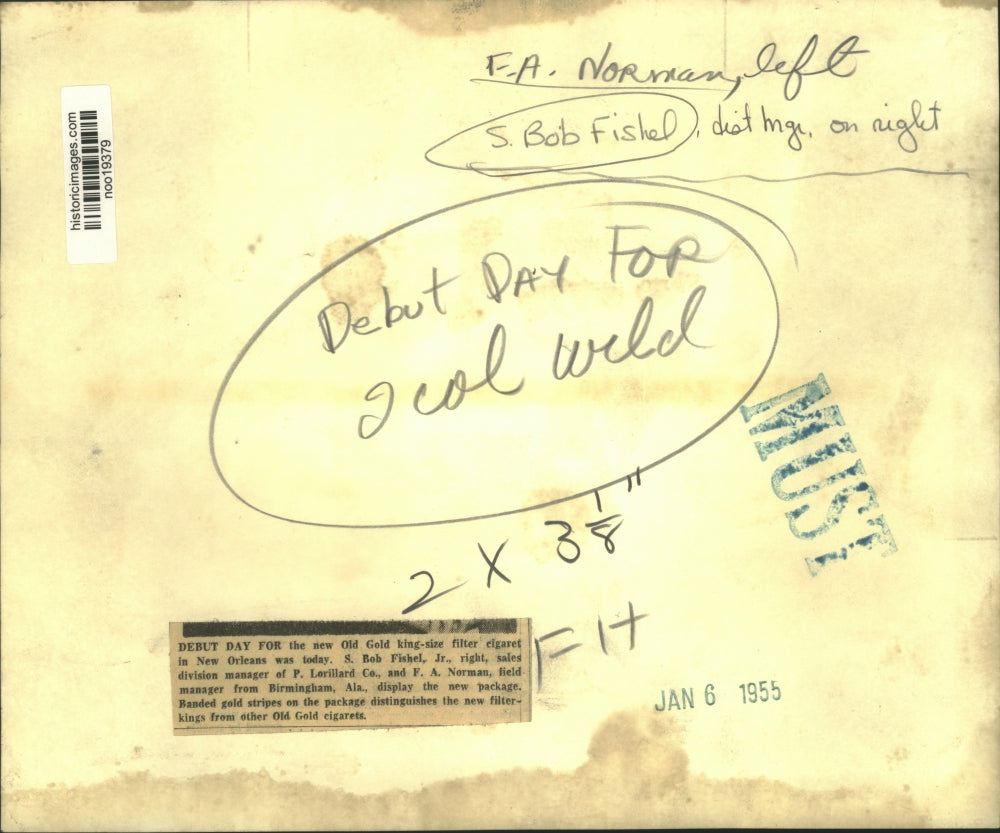 F.A. Norman, left
S. Bob Fishel, dist mgr. on right
historicimages.com
noo19379
Debut Day For
2 col weld
MUST
2 x 3 1/8"
F H
DEBUT DAY FOR the new Old Gold king-size filter cigaret
in New Orleans was today. S. Bob Fishel, Jr., right, sales
division manager of P. Lorillard Co., and F. A. Norman, field
manager from Birmingham, Ala., display the new package.
Banded gold stripes on the package distinguishes the new filter-
kings from other Old Gold cigarets.
JAN 6 1955